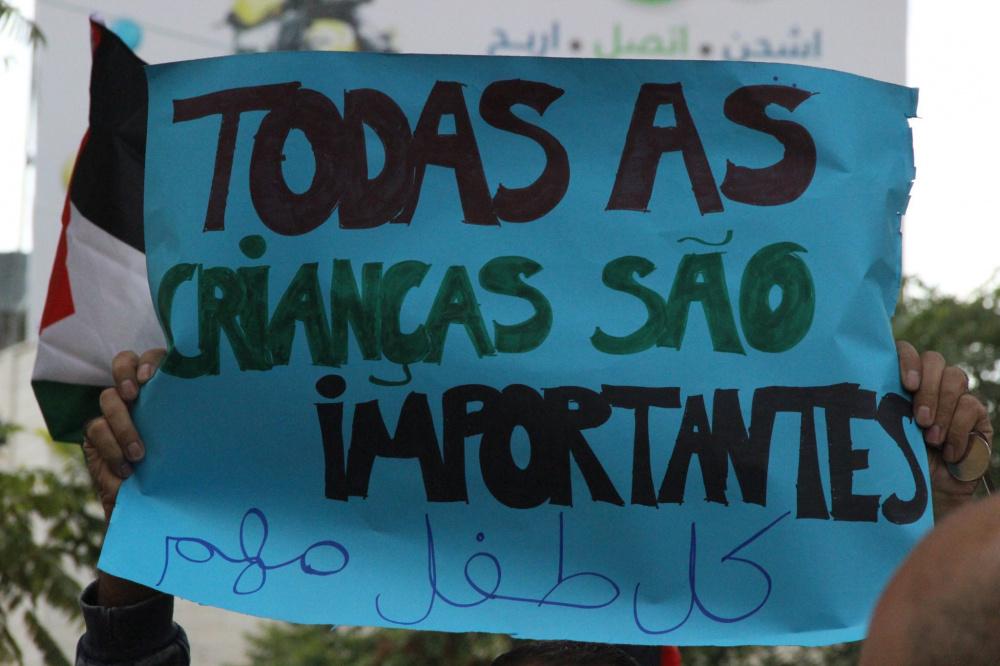 اشحن . اتصل . اربح
TODAS AS
CRIANÇAS SÃO
IMPORTANTES
كل طفل مهم